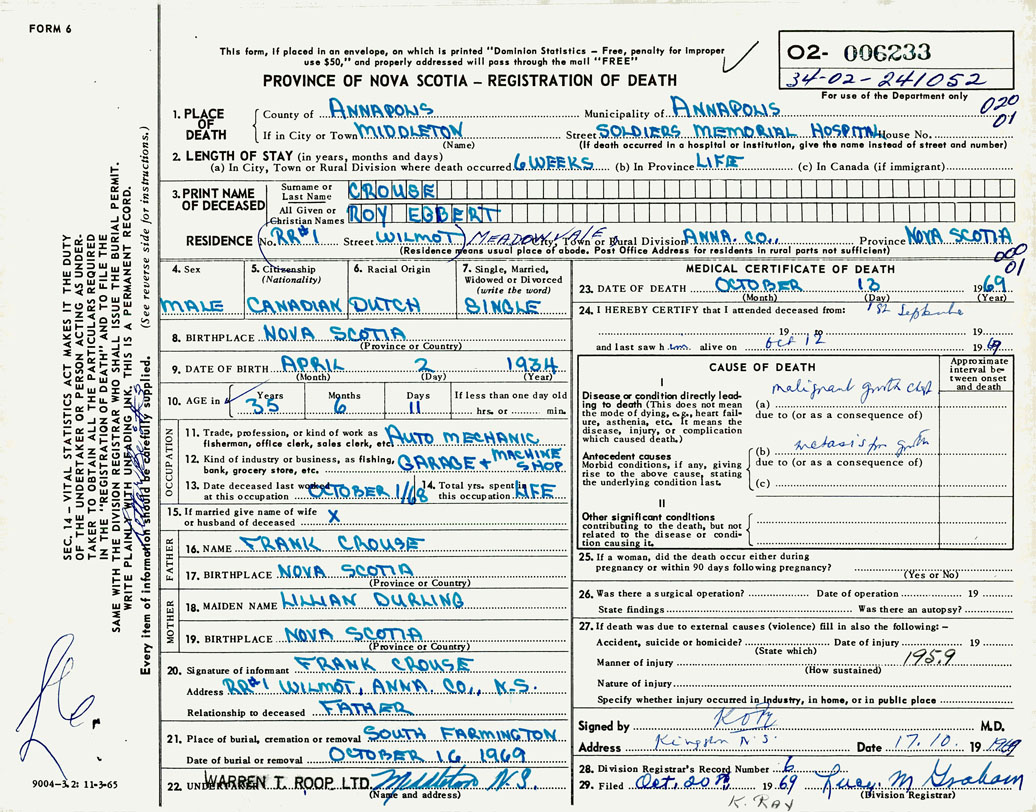 FORM 6
This form, if placed in an envelope, on which is printed "Dominion Statistics – Free, penalty for improper
use $50," and properly addressed will pass through the mail "FREE"
PROVINCE OF NOVA SCOTIA – REGISTRATION OF DEATH
O2- 006233
34-02-241052
For use of the Department only
020
01
1. PLACE OF DEATH
County of ANNAPOLIS Municipality of ANNAPOLIS
If in City or Town MIDDLETON Street SOLDIERS MEMORIAL HOSPITAL House No.
(Name) (If death occurred in a hospital or Institution, give the name instead of street and number)
2. LENGTH OF STAY (in years, months and days)
(a) In City, Town or Rural Division where death occurred 6 WEEKS (b) In Province LIFE (c) In Canada (if immigrant)
3. PRINT NAME OF DECEASED
Surname or Last Name CROUSE
All Given or Christian Names ROY EGBERT
RESIDENCE No. RR#1 Street WILMOT MEADOWVALE City, Town or Rural Division ANNA. CO., Province NOVA SCOTIA
(Residence means usual place of abode. Post Office Address for residents in rural parts not sufficient)
000
01
4. Sex MALE
5. Citizenship (Nationality) CANADIAN
6. Racial Origin DUTCH
7. Single, Married, Widowed or Divorced (write the word) SINGLE
8. BIRTHPLACE NOVA SCOTIA
(Province or Country)
9. DATE OF BIRTH APRIL 2 1934
(Month) (Day) (Year)
10. AGE in Years Months Days If less than one day old
35 6 11 hrs. or min.
OCCUPATION
11. Trade, profession, or kind of work as
fisherman, office clerk, sales clerk, etc. AUTO MECHANIC
12. Kind of industry or business, as fishing,
bank, grocery store, etc. GARAGE + MACHINE SHOP
13. Date deceased last worked
at this occupation OCTOBER 1/68
14. Total yrs. spent in
this occupation LIFE
15. If married give name of wife
or husband of deceased X
FATHER
16. NAME FRANK CROUSE
17. BIRTHPLACE NOVA SCOTIA
(Province or Country)
MOTHER
18. MAIDEN NAME LILLIAN DURLING
19. BIRTHPLACE NOVA SCOTIA
(Province or Country)
20. Signature of informant FRANK CROUSE
Address RR#1 WILMOT, ANNA. CO., N.S.
Relationship to deceased FATHER
21. Place of burial, cremation or removal SOUTH FARMINGTON
Date of burial or removal OCTOBER 16 1969
22. UNDERTAKER WARREN T. ROOP LTD. Middleton N.S.
(Name and address)
MEDICAL CERTIFICATE OF DEATH
23. DATE OF DEATH OCTOBER 13 1969
(Month) (Day) (Year)
24. I HEREBY CERTIFY that I attended deceased from: 1st September
19 to 19
and last saw him alive on Oct 12 1969
CAUSE OF DEATH
Approximate interval between onset and death
I
Disease or condition directly leading to death (This does not mean
the mode of dying, e.g., heart failure, asthenia, etc. It means the
disease, injury, or complication
which caused death.)
(a) malignant growth chest
due to (or as a consequence of)
Antecedent causes
Morbid conditions, if any, giving
rise to the above cause, stating
the underlying condition last.
(b) growth
due to (or as a consequence of)
(c)
II
Other significant conditions
contributing to the death, but not
related to the disease or condition causing it.
25. If a woman, did the death occur either during
pregnancy or within 90 days following pregnancy?
(Yes or No)
26. Was there a surgical operation? Date of operation 19
State findings Was there an autopsy?
27. If death was due to external causes (violence) fill in also the following: –
Accident, suicide or homicide? Date of injury 19
(State which)
Manner of injury 195.9
(How sustained)
Nature of injury
Specify whether injury occurred in industry, in home, or in public place
Signed by M.D.
Address Kingston N.S. Date 17.10. 19 1969
28. Division Registrar's Record Number 6
29. Filed Oct. 20th 19 69 Lucy M Graham
(Division Registrar)
K. Ray
SEC. 14 – VITAL STATISTICS ACT MAKES IT THE DUTY
OF THE UNDERTAKER OR PERSON ACTING AS UNDER-
TAKER TO OBTAIN ALL THE PARTICULARS REQUIRED
IN THE "REGISTRATION OF DEATH" AND TO FILE THE
SAME WITH THE DIVISION REGISTRAR WHO SHALL ISSUE THE BURIAL PERMIT.
WRITE PLAINLY WITH UNFADING INK. THIS IS A PERMANENT RECORD.
Every item of information should be carefully supplied. (See reverse side for instructions.)
9004–3.2: 11-3-65